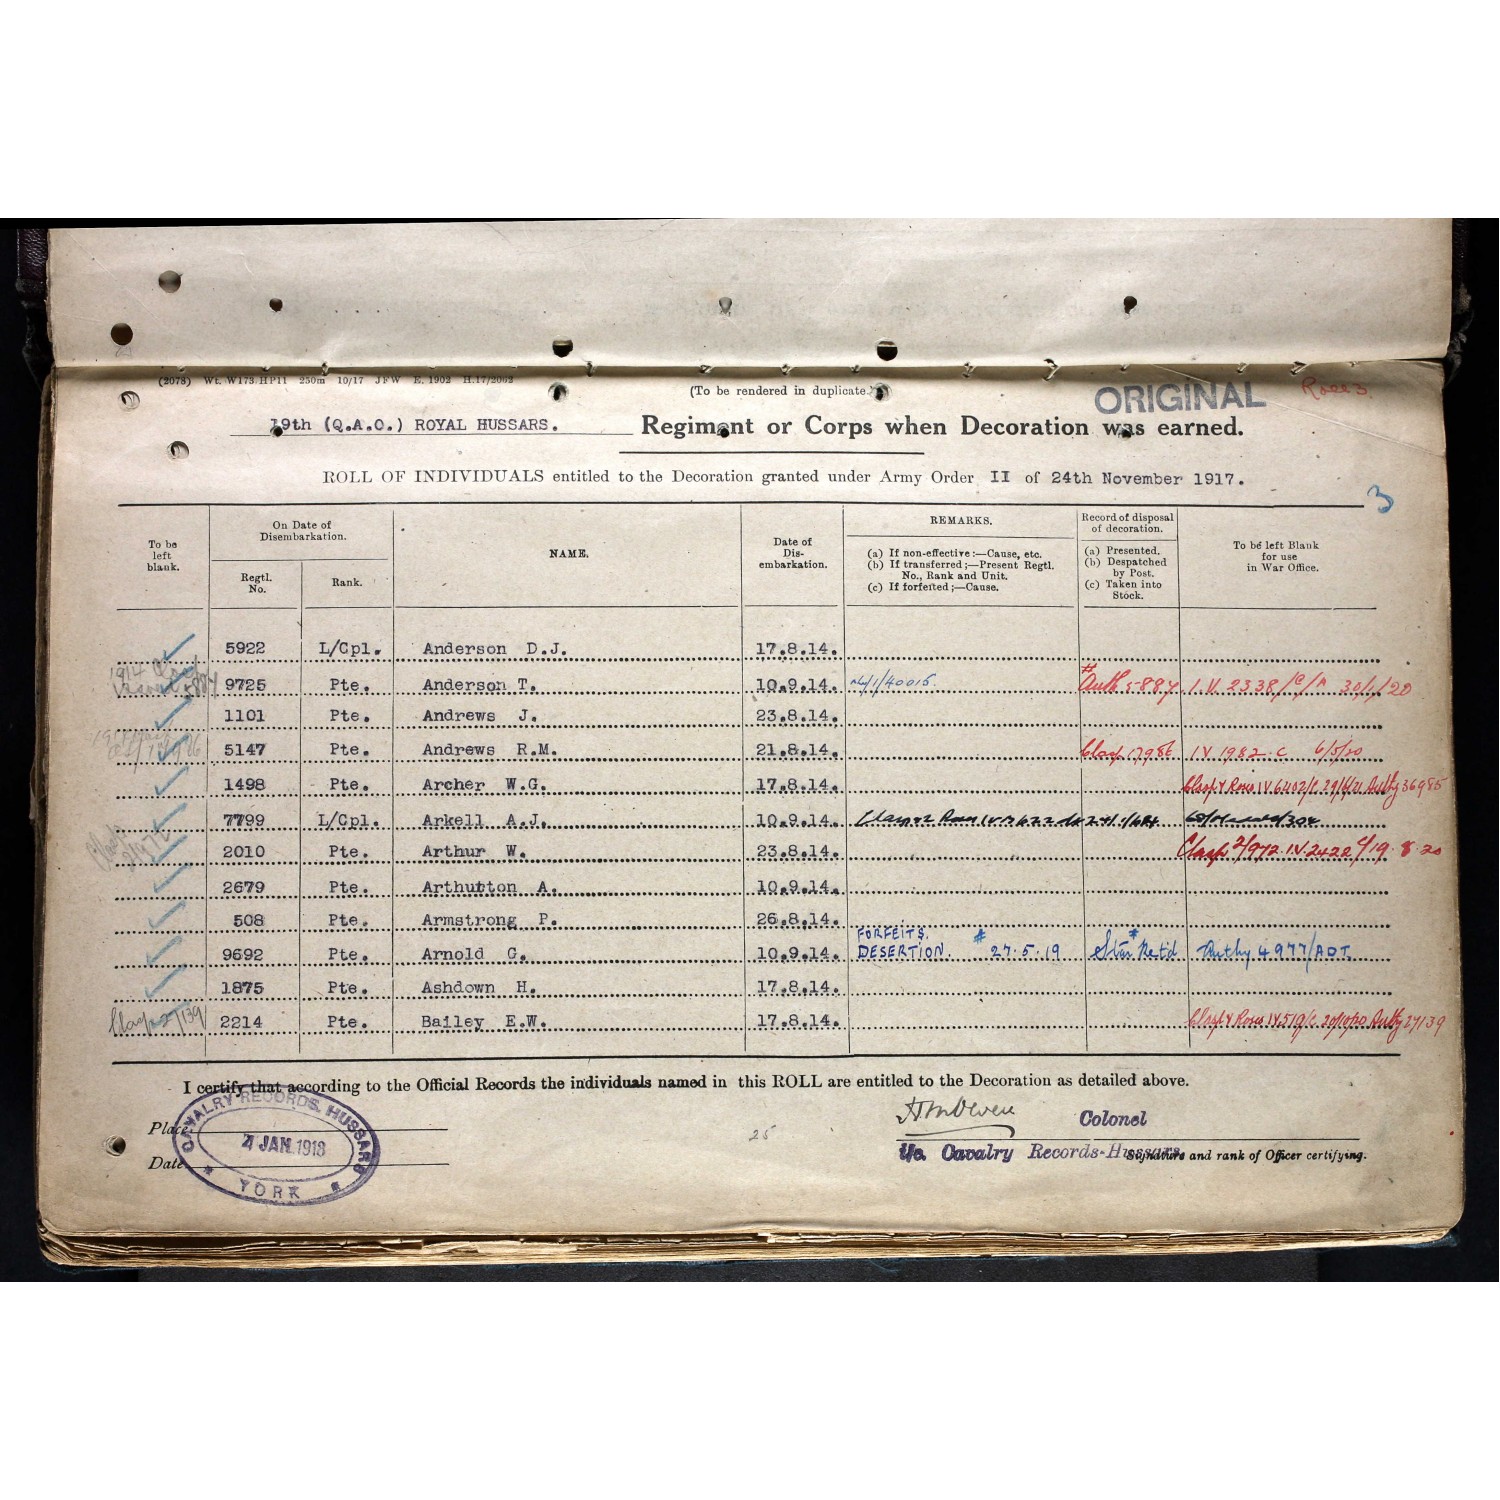 (2078) Wt. W173 HP11 250m 10/17 JFW E. 1902 H.17/2062
(To be rendered in duplicate.)
ORIGINAL
Roll 3.
19th (Q.A.O.) ROYAL HUSSARS. Regiment or Corps when Decoration was earned.
ROLL OF INDIVIDUALS entitled to the Decoration granted under Army Order II of 24th November 1917.
3
To be left blank.
On Date of Disembarkation.
Regtl. No.
Rank.
NAME.
Date of Dis-embarkation.
REMARKS.
(a) If non-effective:—Cause, etc.
(b) If transferred;—Present Regtl. No., Rank and Unit.
(c) If forfeited;—Cause.
Record of disposal of decoration.
(a) Presented.
(b) Despatched by Post.
(c) Taken into Stock.
To be left Blank for use in War Office.
5922 L/Cpl. Anderson D.J. 17.8.14.
9725 Pte. Anderson T. 10.9.14. Auth 5887 I.V. 2338/C/A 30/1/20
1101 Pte. Andrews J. 23.8.14.
5147 Pte. Andrews R.M. 21.8.14. Clasp 17986 IV 1982.C 6/5/20
1498 Pte. Archer W.G. 17.8.14. Clasp & Roses IV 6402/C 29/6/21 Authy 36985
7799 L/Cpl. Arkell A.J. 10.9.14.
2010 Pte. Arthur W. 23.8.14. Clasp 2/972 IV.2422 C/19.8.20
2679 Pte. Arthurton A. 10.9.14.
508 Pte. Armstrong P. 26.8.14.
9692 Pte. Arnold G. 10.9.14. FORFEITS. DESERTION. # 27.5.19 Star Retd Authy 4977/ADT.
1875 Pte. Ashdown H. 17.8.14.
2214 Pte. Bailey E.W. 17.8.14. Clasp & Roses IV 519/C 20/10/20 Authy 27139
I certify that according to the Official Records the individuals named in this ROLL are entitled to the Decoration as detailed above.
Place
Date
CAVALRY RECORDS. HUSSARS
4 JAN. 1918
YORK
25
Colonel
i/c. Cavalry Records-Hussars.
Signature and rank of Officer certifying.